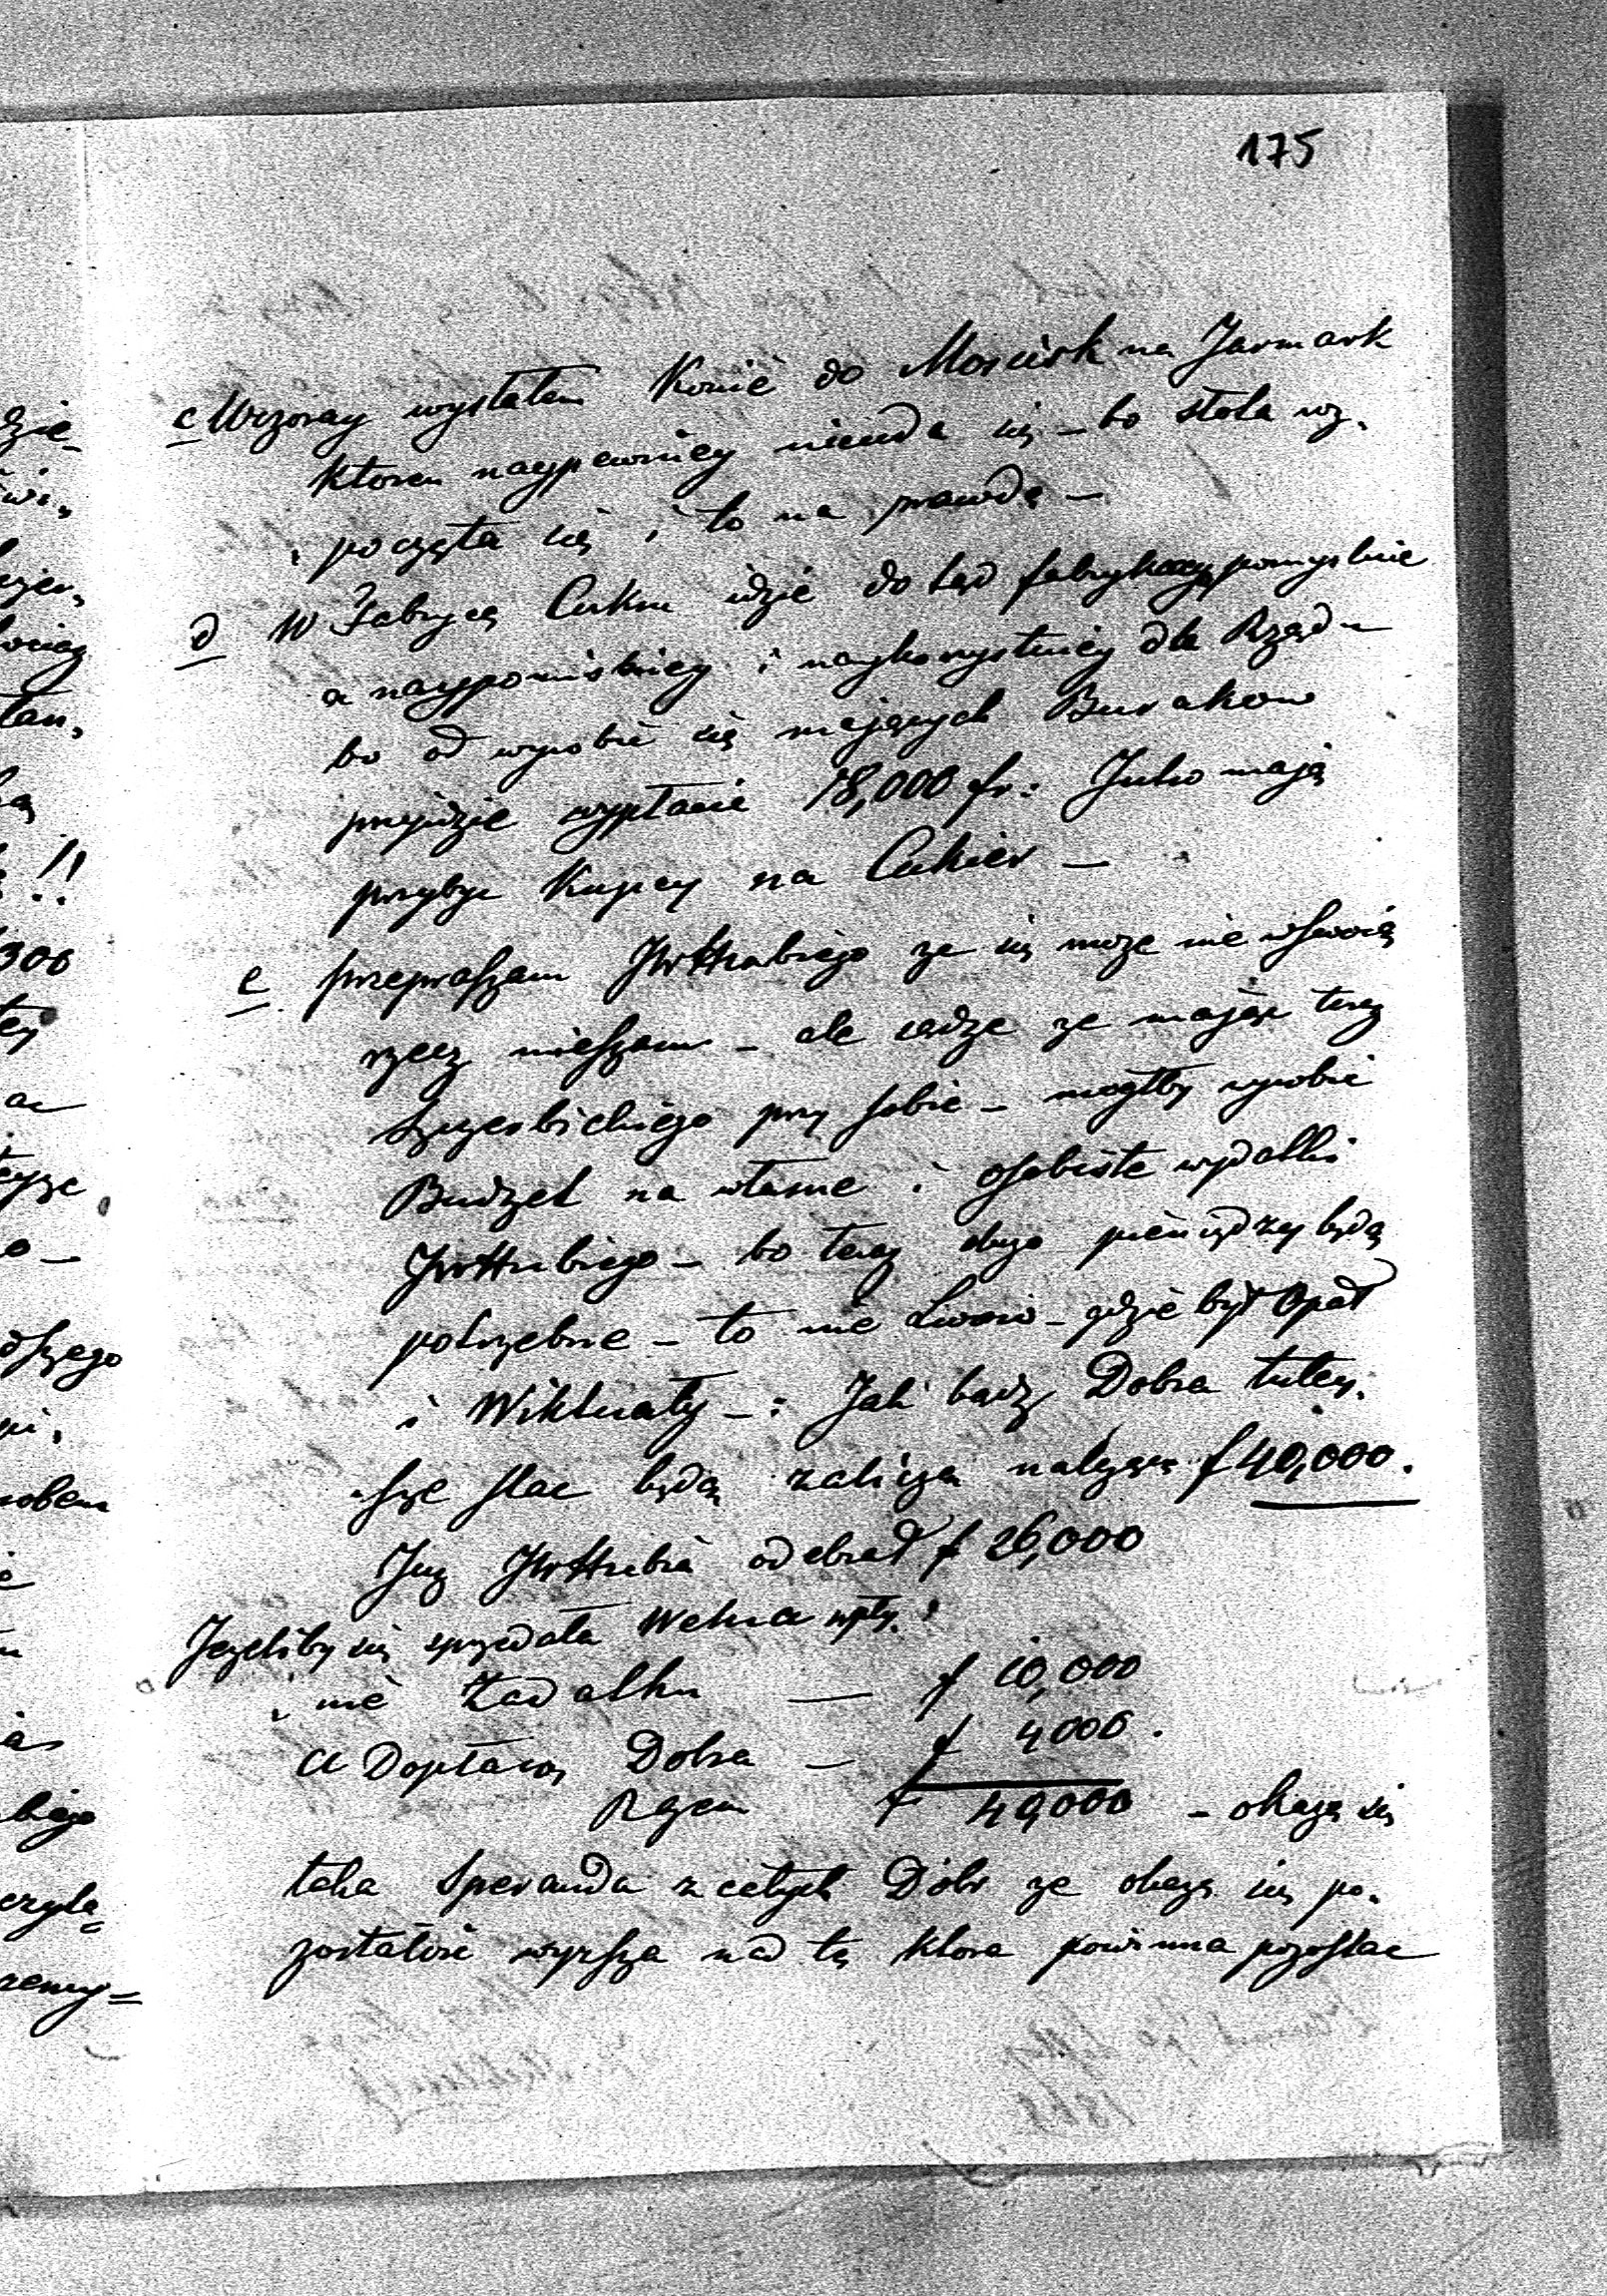 175
c Wczoray wysłałem Konie do Mościsk na Jarmark
ktoren naypewniey nieuda się – bo słota roz„
„poczęta się i to na prawdę –
d W Fabryce Cukru idzie do tąd fabrykacya pomyslnie
a naypornisbniey i naykorzystniey dla Rządu
bo od wyrobić się mających Burakow
przyjdzie wypłacić 18,000 fr: Jutro mają
przybyc Kupcy na Cukier –
e przepraszam JWHrabiego ze się moze nie w swoią
rzecz mieszam – ale sądze ze mając teraz
Szczerbickiego przy sobie – mogłby wyrobić
Budzet na własne i osobiste wydatki
JWHrabiego – bo teraz dużo pieniędzy będą
potrzebne – to nie Lwow – gdzie był Opał
i Wiktuały – : Jak bądz Dobra tutey„
„sze stac będą zaliczą nalezące f 40,000.
Juz JWHrabia odebrał f 26,000
Jezeliby się sprzedała Wełna wpły„
„nie Zadatku — f 10,000
a Dopłacą Dobra — f 4000.
Razem f 40,000 – okaze się
taka Speranda z całych Dobr ze okaze się po„
zostałość wyzsza nad tę ktora powinna pozostac